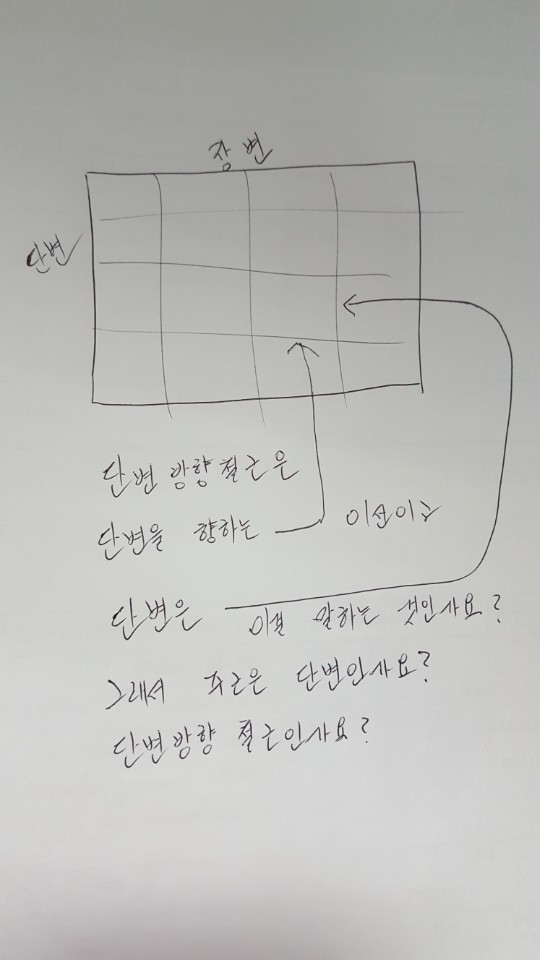 장변
단변
단변 방향 철근은
단변을 향하는 이선이고
단변은 이걸 말하는 것인가요?
그래서 주근은 단변인가요?
단변방향 철근인가요?